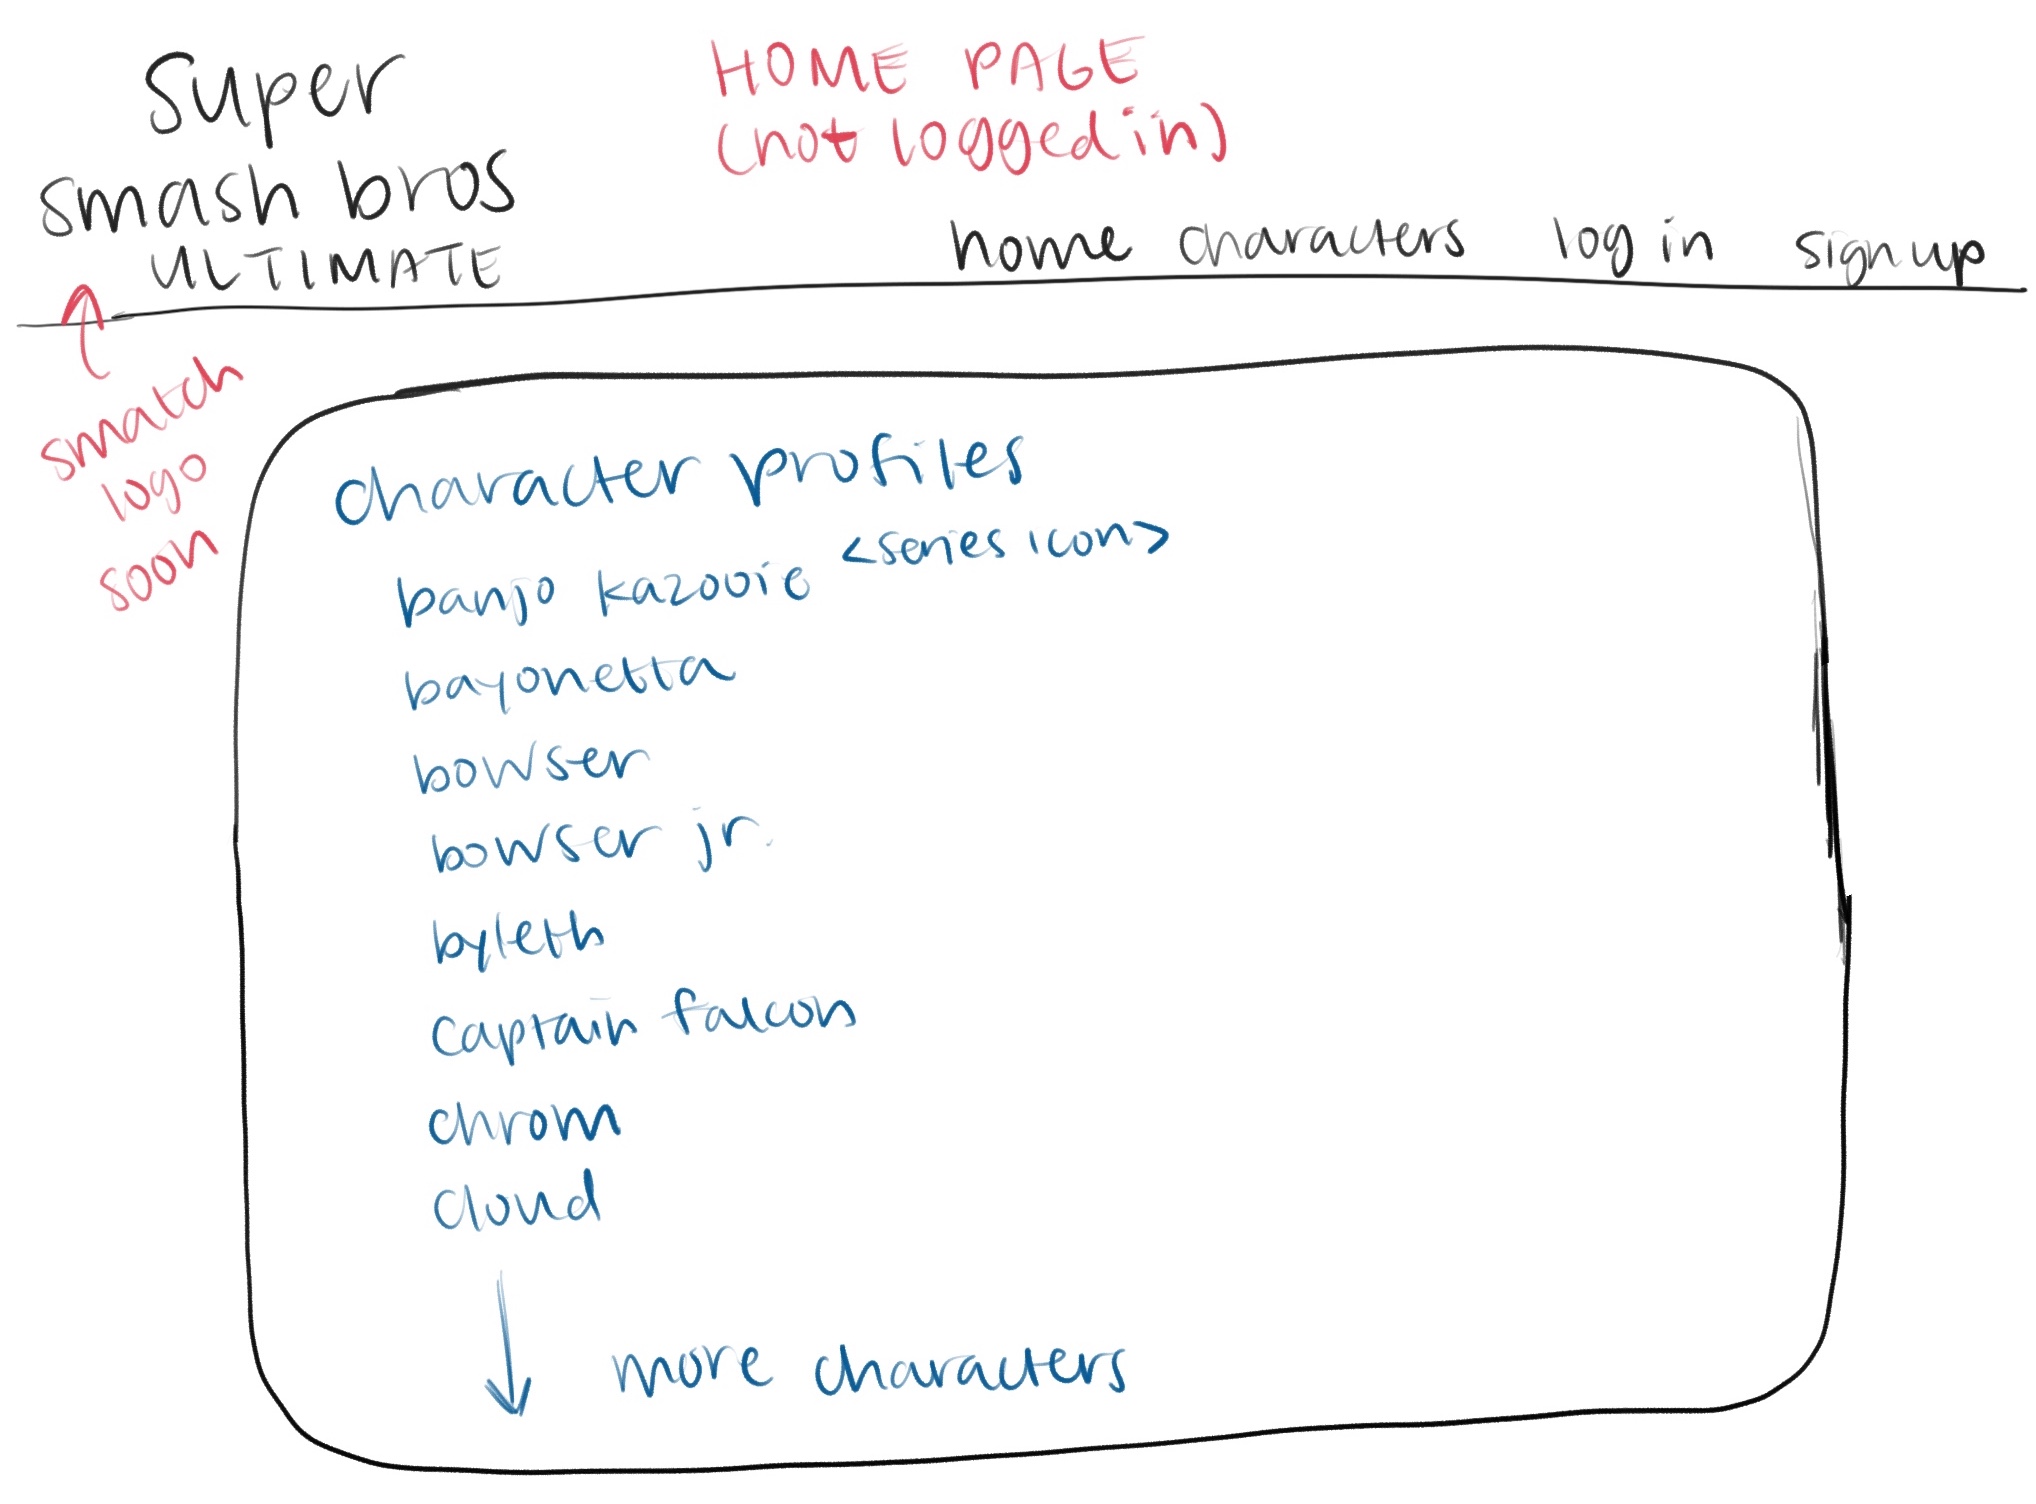 super
smash bros
ULTIMATE
HOME PAGE
(not logged in)
home characters log in sign up
smatch
logo
soon
character profiles
banjo kazooie <series icon>
bayonetta
bowser
bowser jr.
byleth
captain falcon
chrom
cloud
more characters